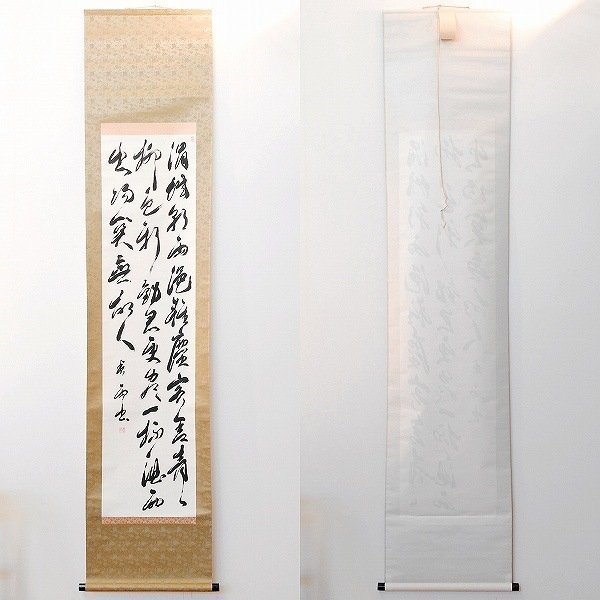 渭城朝雨浥軽塵客舎青々
柳色新勧君更尽一杯酒西
出陽関無故人